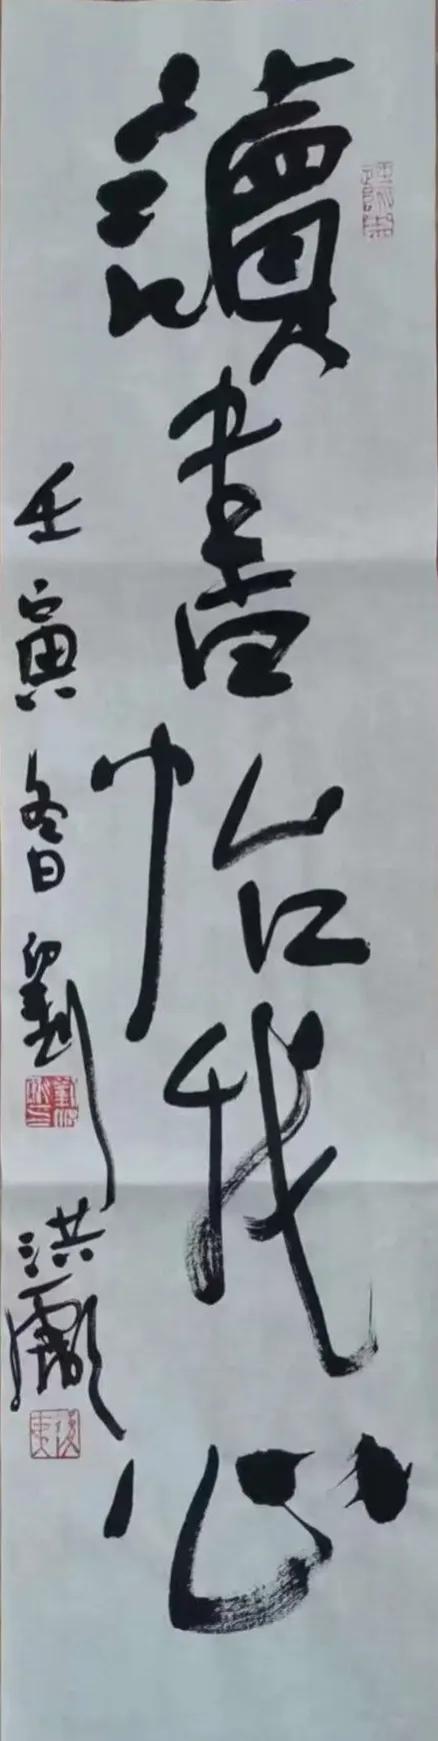 讀書怡我心
壬寅冬日劉洪彪